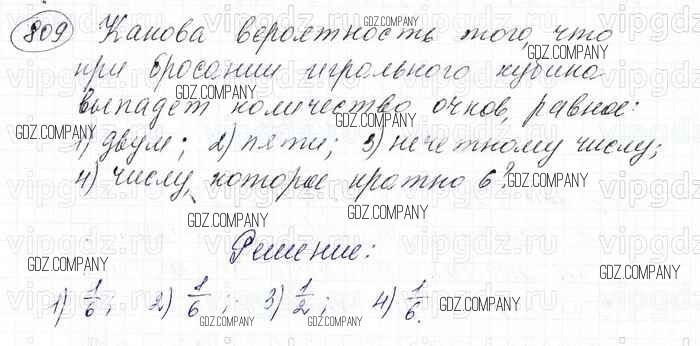 809 Какова вероятность того, что
при бросании игрального кубика
выпадет количество очков, равное:
1) двум; 2) пяти; 3) нечетному числу;
4) числу, которое кратно 6?
Решение:
1) 1/6; 2) 1/6; 3) 1/2; 4) 1/6.
GDZ.COMPANY
vipgdz.ru